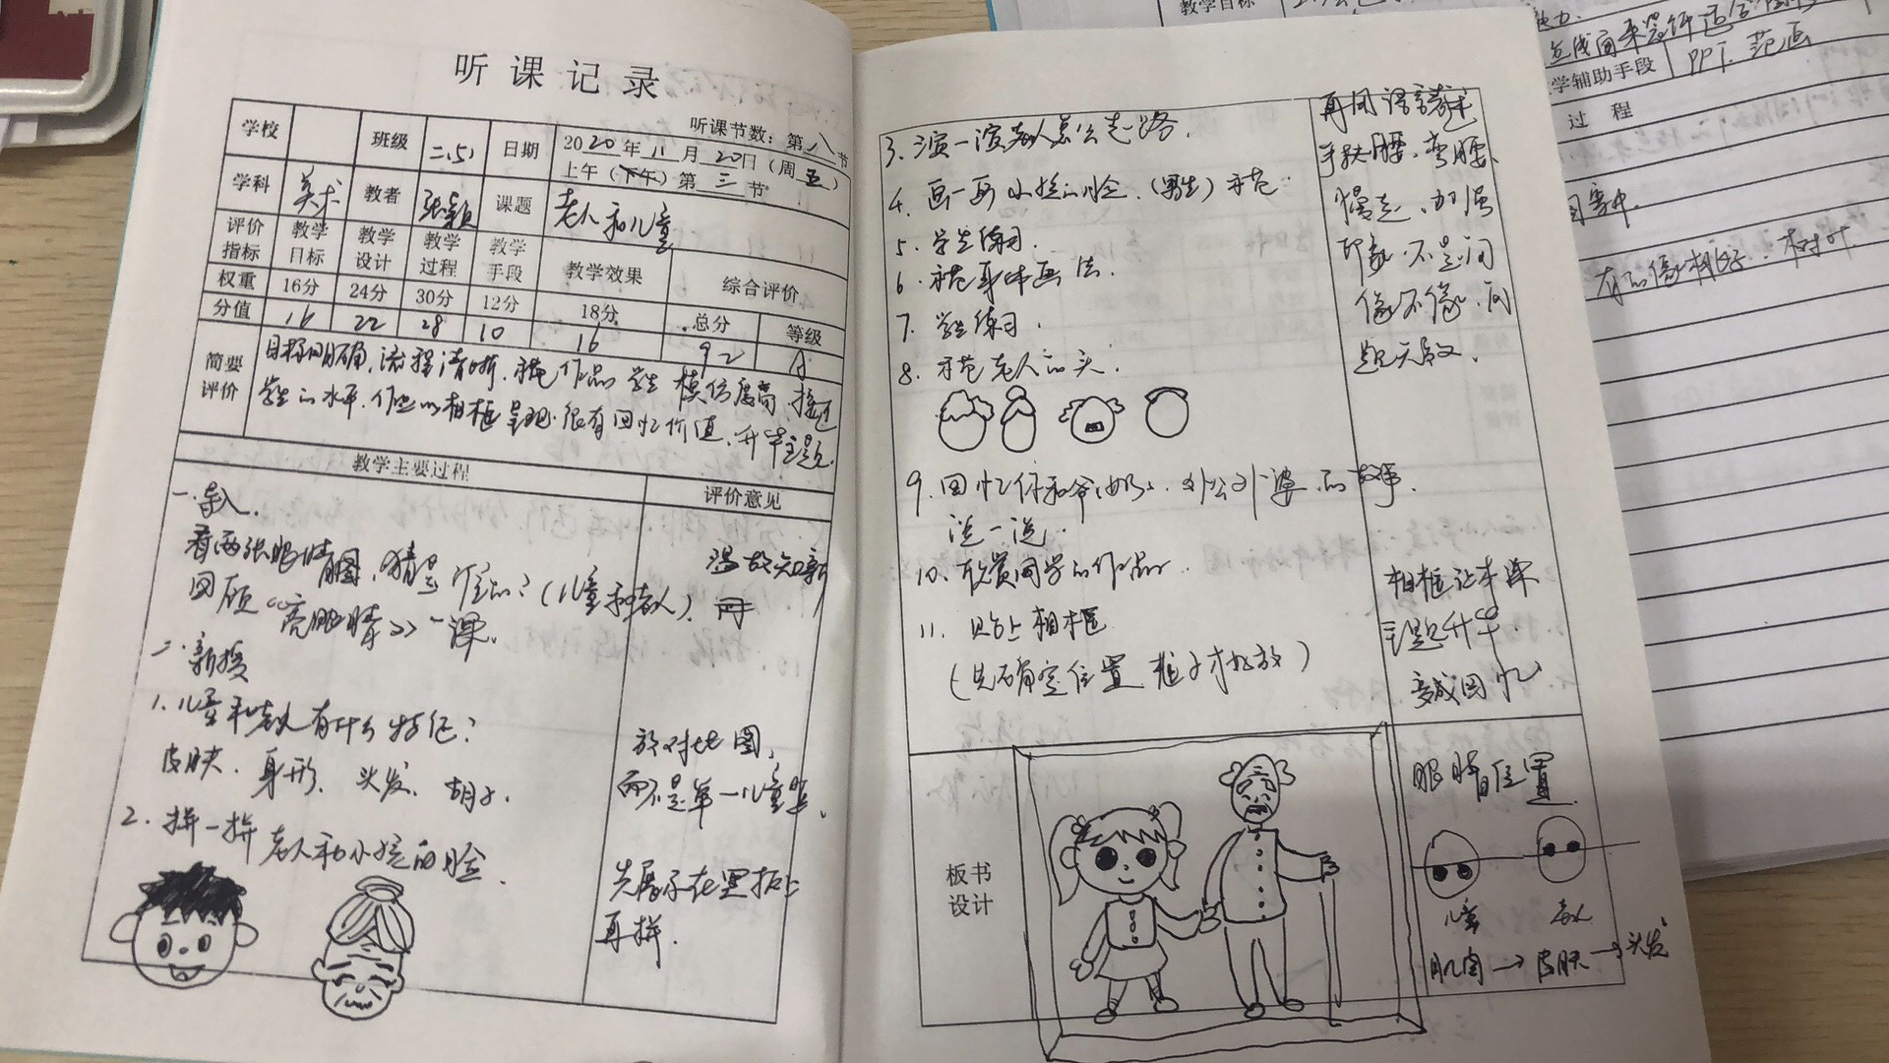 听课记录
听课节数：第八节
学校 班级 二（5） 日期 2020年11月20日（周五）
上午（下午）第三节
学科 美术 教者 张颖 课题 老人和儿童
评价指标 教学目标 教学设计 教学过程 教学手段 教学效果 综合评价
权重 16分 24分 30分 12分 18分 总分 等级
分值 16 22 28 10 16 92 A
简要评价
目标明确，流程清晰，示范作品学生模仿度高，接近
学生的水平，作业以相框呈现，很有回忆价值，升华主题
教学主要过程
评价意见
一、导入
看两张眼睛图，猜是谁的？（儿童和老人）
回顾“亮眼睛”一课。
温故知新
二、新授
1. 儿童和老人有什么特征？
皮肤、身形、头发、胡子.
放对比图，
而不是单一儿童照、
2. 拼一拼老人和小孩的脸.
先展示在黑板上
再拼.
3. 演一演老人怎么走路.
4. 画一画小孩的脸.（男生）示范
5. 学生练习.
6. 示范身体画法.
7. 学生练习.
8. 示范老人的头.
再用语言
手扶腰、弯腰、
慢走、加强
印象.不是问
像不像、问
题无效.
9. 回忆你和爷爷奶奶、外公外婆的故事.
说一说.
10. 欣赏同学的作品.
11. 贴上相框
（先确定位置 框子才松放）
相框让本课
主题升华.
变成回忆
板书设计
眼睛位置
儿童 老人
肌肉→皮肤→头发
教学目标
能力.
学辅助手段 PPT. 范画
过 程